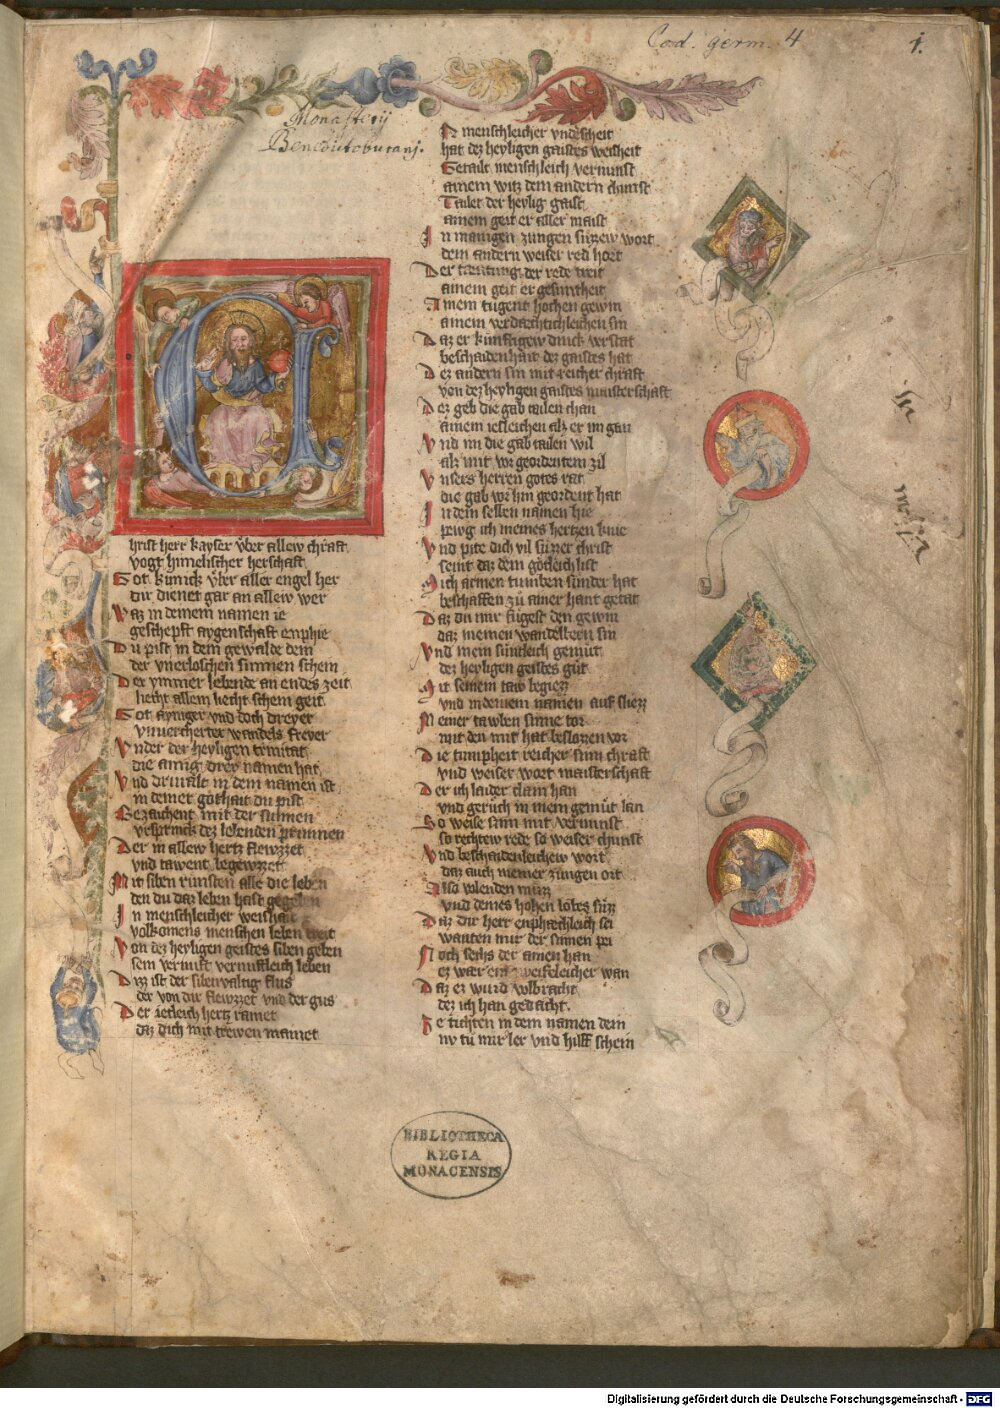 Cod. germ. 4
1.
Monasterij
Benedictoburani.
C
hrist herr kayser vber allew chraft
vogt himelischer herschaft
Got kunick vber aller engel her
dir dienet gar an allew wer
Waz in deinem namen ie
geschepft aygenschaft enphie
Du pist in dem gewalde dein
der vnerloschen sunnen schein
Der ymmer lebende an endes zeit
liecht allem liecht schein geit
Got ayniger vnd doch dreyer
vnuercherter wandels freyer
Vnder der heyligen trinitat
die ainig drey namen hat
Vnd driualt in dem namen ist
in deiner gothait du pist
Bezaichent mit der sunnen
vrsprinck dez lebenden prunnen
Der in allew hertz flewzzet
vnd tawent begewzzet
Mit siben runsten alle die leben
den du daz leben hast gegeben
In menschleicher weishait
volkomens menschen leben treit
Von dez heyligen geistes siben geben
sein vernuft vernuftleich leben
Dizz ist der sibenvaltig flus
der von dir flewzzet vnd der gus
Der ietleich hertz ramet
daz dich mit trewen mainet
In menschleicher vnderscheit
hat dez heyligen gaistes weisheit
Getailt menschleich vernunst
ainem witz dem andern chunst
Tailet der heylig gaist
ainem geit er aller maist
In manigen zungen suzzew wort
dem andern weiser red hort
Der tæutung der rede treit
ainem geit er gesuntheit
Ainem tugent hochen gewin
ainem verdaechtichleichen sin
Daz er kunftigew dinck verstat
beschaidenhait dez gaistes hat
Dez andern sin mit reicher chraft
von dez heyligen gaistes maisterschaft
Der geb die gab tailen chan
ainem ietleichen alz er im gan
Vnd im die gab tailen wil
alz mit vor geordentem zil
Vnsers herren gotes rat
die gab vor hin geordent hat
In dem selben namen hie
peivg ich meines hertzen knie
Vnd pite dich vil suzzer christ
seint daz dein götleich list
Mich armen tumben sunder hat
beschaffen zů ainer hant getat
Daz du mir fůgest den gewin
daz meinen wandelbern sin
Vnd mein suntleich gemüt
dez heyligen geistes güt
Mit seinem taw begiezz
vnd in deinem namen auf sliezz
Meiner tawben sinne tor
mit den mir hat beslozzen vor
Die tumpheit reicher sinn chraft
vnd weiser wort maisterschaft
Der ich laider clain han
vnd geruch in mein gemüt lan
So weise sinn mit vernunst
so rechtew rede so weiser chunst
Vnd beschaidenleichew wort
daz auch meiner zungen ort
Also
vnd deines hohen lobes suzz
Daz dir herr enphaechleich sei
wanten mir der sinnen pei
Noch sechs der ainen han
ez wær ein zweifeleicher wan
Daz ez wurd volbracht
dez ich han gedacht.
Ze tichten in dem namen dein
nv tů mir ler vnd hilff schein
BIBLIOTHECA
REGIA
MONACENSIS
Digitalisierung gefördert durch die Deutsche Forschungsgemeinschaft - DFG